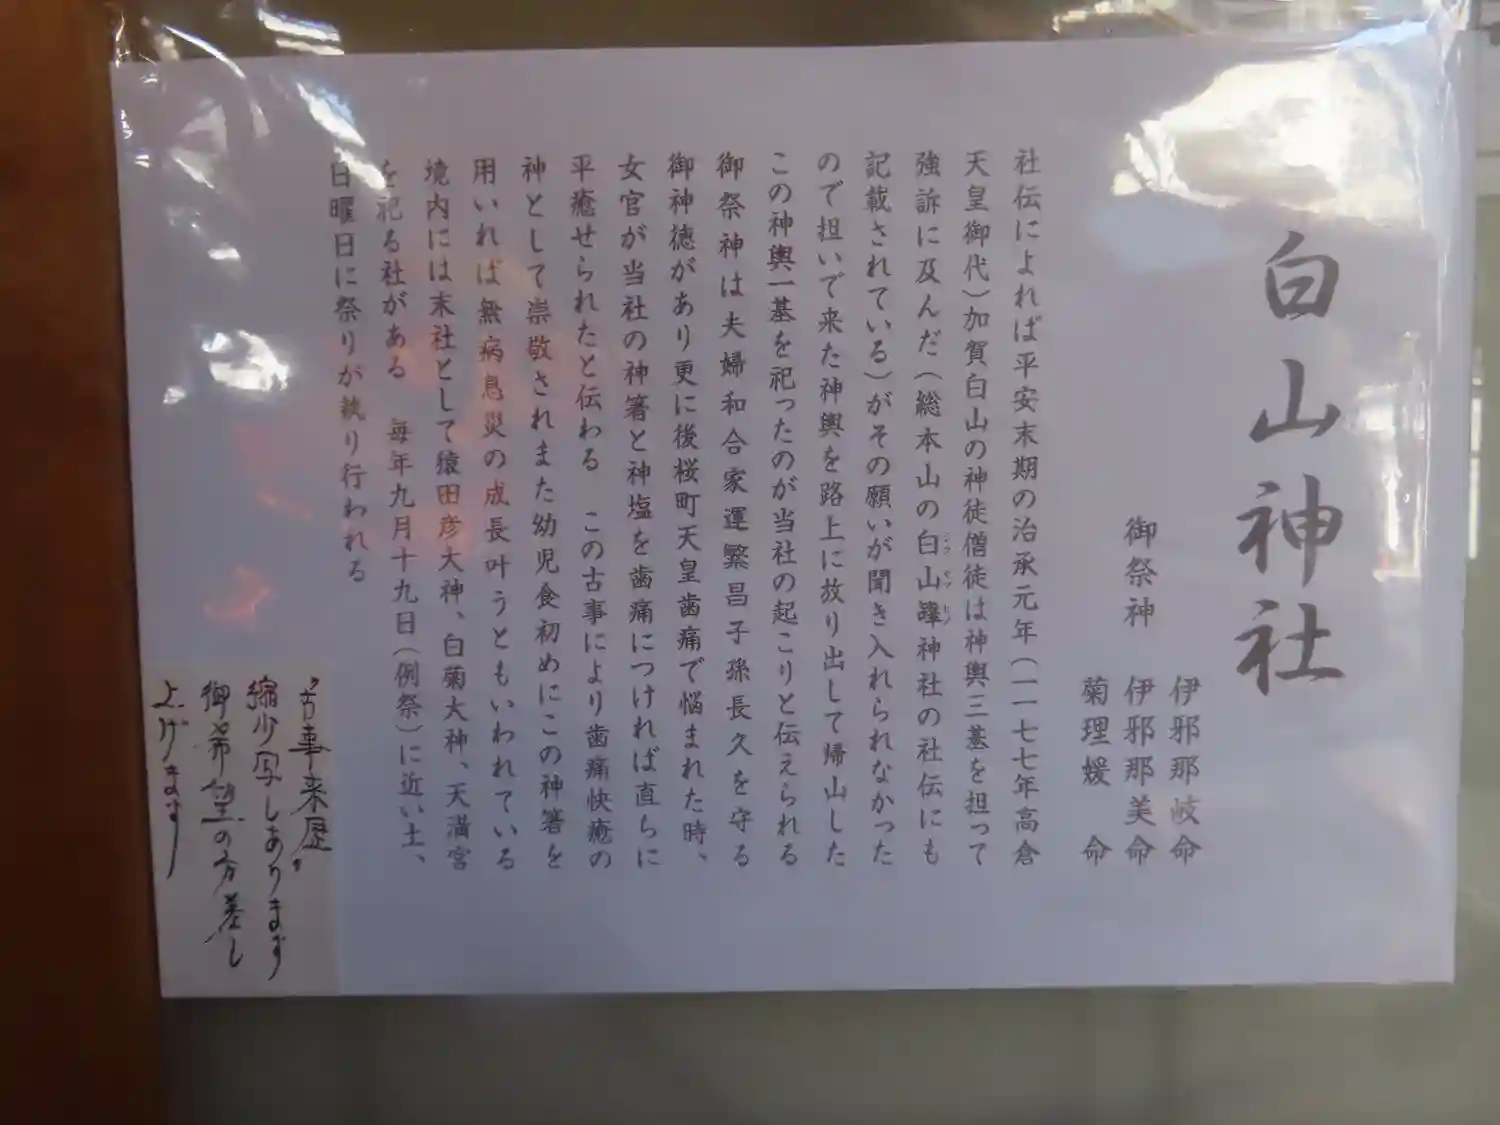 白山神社
御祭神
伊邪那岐命
伊邪那美命
菊理媛 命
社伝によれば平安末期の治承元年(一一七七年高倉
天皇御代)加賀白山の神徒僧徒は神輿三基を担って
強訴に及んだ(総本山の白山神社の社伝にも
記載されている)がその願いが聞き入れられなかった
ので担いで来た神輿を路上に放り出して帰山した
この神輿一基を祀ったのが当社の起こりと伝えられる
御祭神は夫婦和合家運繁昌子孫長久を守る
御神徳があり更に後桜町天皇歯痛で悩まれた時、
女官が当社の神箸と神塩を歯痛につければ直らに
平癒せられたと伝わる この古事により歯痛快癒の
神として崇敬されまた幼児食初めにこの神箸を
用いれば無病息災の成長叶うともいわれている
境内には末社として猿田彦大神、白菊大神、天満宮
を祀る社がある 毎年九月十九日(例祭)に近い土、
日曜日に祭りが執り行われる
〝古事来歴〟
縮少写しあります
御希望の方差し
上げます